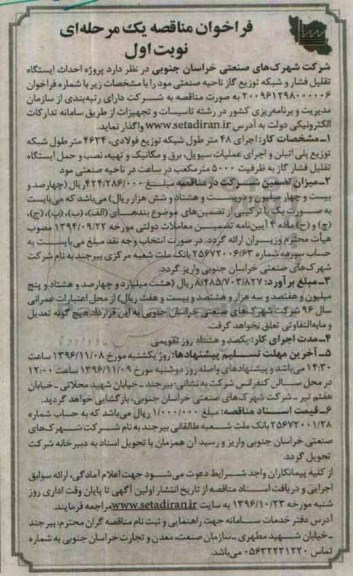 فراخوان مناقصه یک مرحله‌ای
نوبت اول
شرکت شهرک‌های صنعتی خراسان جنوبی در نظر دارد پروژه احداث ایستگاه
تقلیل فشار و شبکه توزیع گاز ناحیه صنعتی مود را با مشخصات زیر با شماره فراخوان
۲۰۰۹۶۱۲۹۸۰۰۰۰۰۶ به صورت مناقصه به شرکت دارای رتبه‌بندی از سازمان
مدیریت و برنامه‌ریزی کشور در رشته تاسیسات و تجهیزات از طریق سامانه تدارکات
الکترونیکی دولت به آدرس www.setadiran.ir واگذار نماید.
۱-مشخصات کار: اجرای ۴۸ متر طول شبکه توزیع فولادی، ۴۶۳۴ متر طول شبکه
توزیع پلی اتیلن و اجرای عملیات سیویل، برق و مکانیک و تهیه، نصب و حمل ایستگاه
تقلیل فشار گاز به ظرفیت ۵۰۰۰ مترمکعب در ساعت در ناحیه صنعتی مود
۲-میزان تضمین شرکت در مناقصه مبلغ ۴۲۴/۲۸۶/۰۰۰ ریال (چهارصد و
بیست و چهار میلیون و دویست و هشتاد و شش هزار ریال) می‌باشد که می‌بایست
به صورت یک یا ترکیبی از تضمین‌های موضوع بندهای (الف)، (ب)، (پ)،
(ج) و (ح) ماده ۴ آیین‌نامه تضمین معاملات دولتی مورخه ۱۳۹۴/۰۹/۲۲ مصوب
هیأت محترم وزیران ارائه گردد. در صورت انتخاب وجه نقد مبلغ می‌بایست به
حساب سپرده شماره ۲۵۶۷۲۰۰۶/۶۳ بانک ملت شعبه مرکزی بیرجند به نام شرکت
شهرک‌های صنعتی خراسان جنوبی واریز گردد.
۳-مبلغ برآورد: ۸/۴۸۵/۷۰۳/۸۲۷ ریال (هشت میلیارد و چهارصد و هشتاد و پنج
میلیون و هفتصد و سه هزار و هشتصد و بیست و هفت ریال) از محل اعتبارات عمرانی
سال ۹۶ شرکت شهرک‌های صنعتی خراسان جنوبی به این قرارداد هیچ گونه تعدیل
و مابه‌التفاوتی تعلق نخواهد گرفت.
۴-مدت اجرای کار: یکصد و هشتاد روز تقویمی
۵-آخرین مهلت تسلیم پیشنهادها: روز یکشنبه مورخ ۱۳۹۶/۱۱/۰۸ ساعت
۱۴:۳۰ می‌باشد و پیشنهادهای واصله روز دوشنبه مورخ ۱۳۹۶/۱۱/۰۹ ساعت ۱۲:۰۰
در محل سالن کنفرانس شرکت به نشانی: بیرجند-خیابان شهید محلاتی-خیابان
هفتم تیر-شرکت شهرک‌های صنعتی خراسان جنوبی، بازگشایی خواهد گردید.
۶-قیمت اسناد مناقصه: مبلغ ۱/۰۰۰/۰۰۰ ریال می‌باشد که به حساب شماره
۲۵۶۷۲۰۰۱/۲۸ بانک ملت شعبه طالقانی بیرجند به نام شرکت شهرک‌های
صنعتی خراسان جنوبی واریز و رسید آن همزمان با تحویل اسناد به دبیرخانه شرکت
تحویل گردد.
از کلیه پیمانکاران واجد شرایط دعوت می‌شود جهت اعلام آمادگی، ارائه سوابق
اجرایی و دریافت اسناد مناقصه از تاریخ انتشار اولین آگهی تا پایان وقت اداری روز
شنبه مورخه ۱۳۹۶/۱۰/۲۳ به سایت www.setadiran.ir مراجعه فرمایند.
آدرس دفتر خدمات سامانه جهت راهنمایی و ثبت نام مناقصه گران محترم: بیرجند
-خیابان شهید مطهری-سازمان صنعت، معدن و تجارت خراسان جنوبی به شماره
تماس ۰۵۶۳۲۲۲۱۲۲۰ می‌باشد.